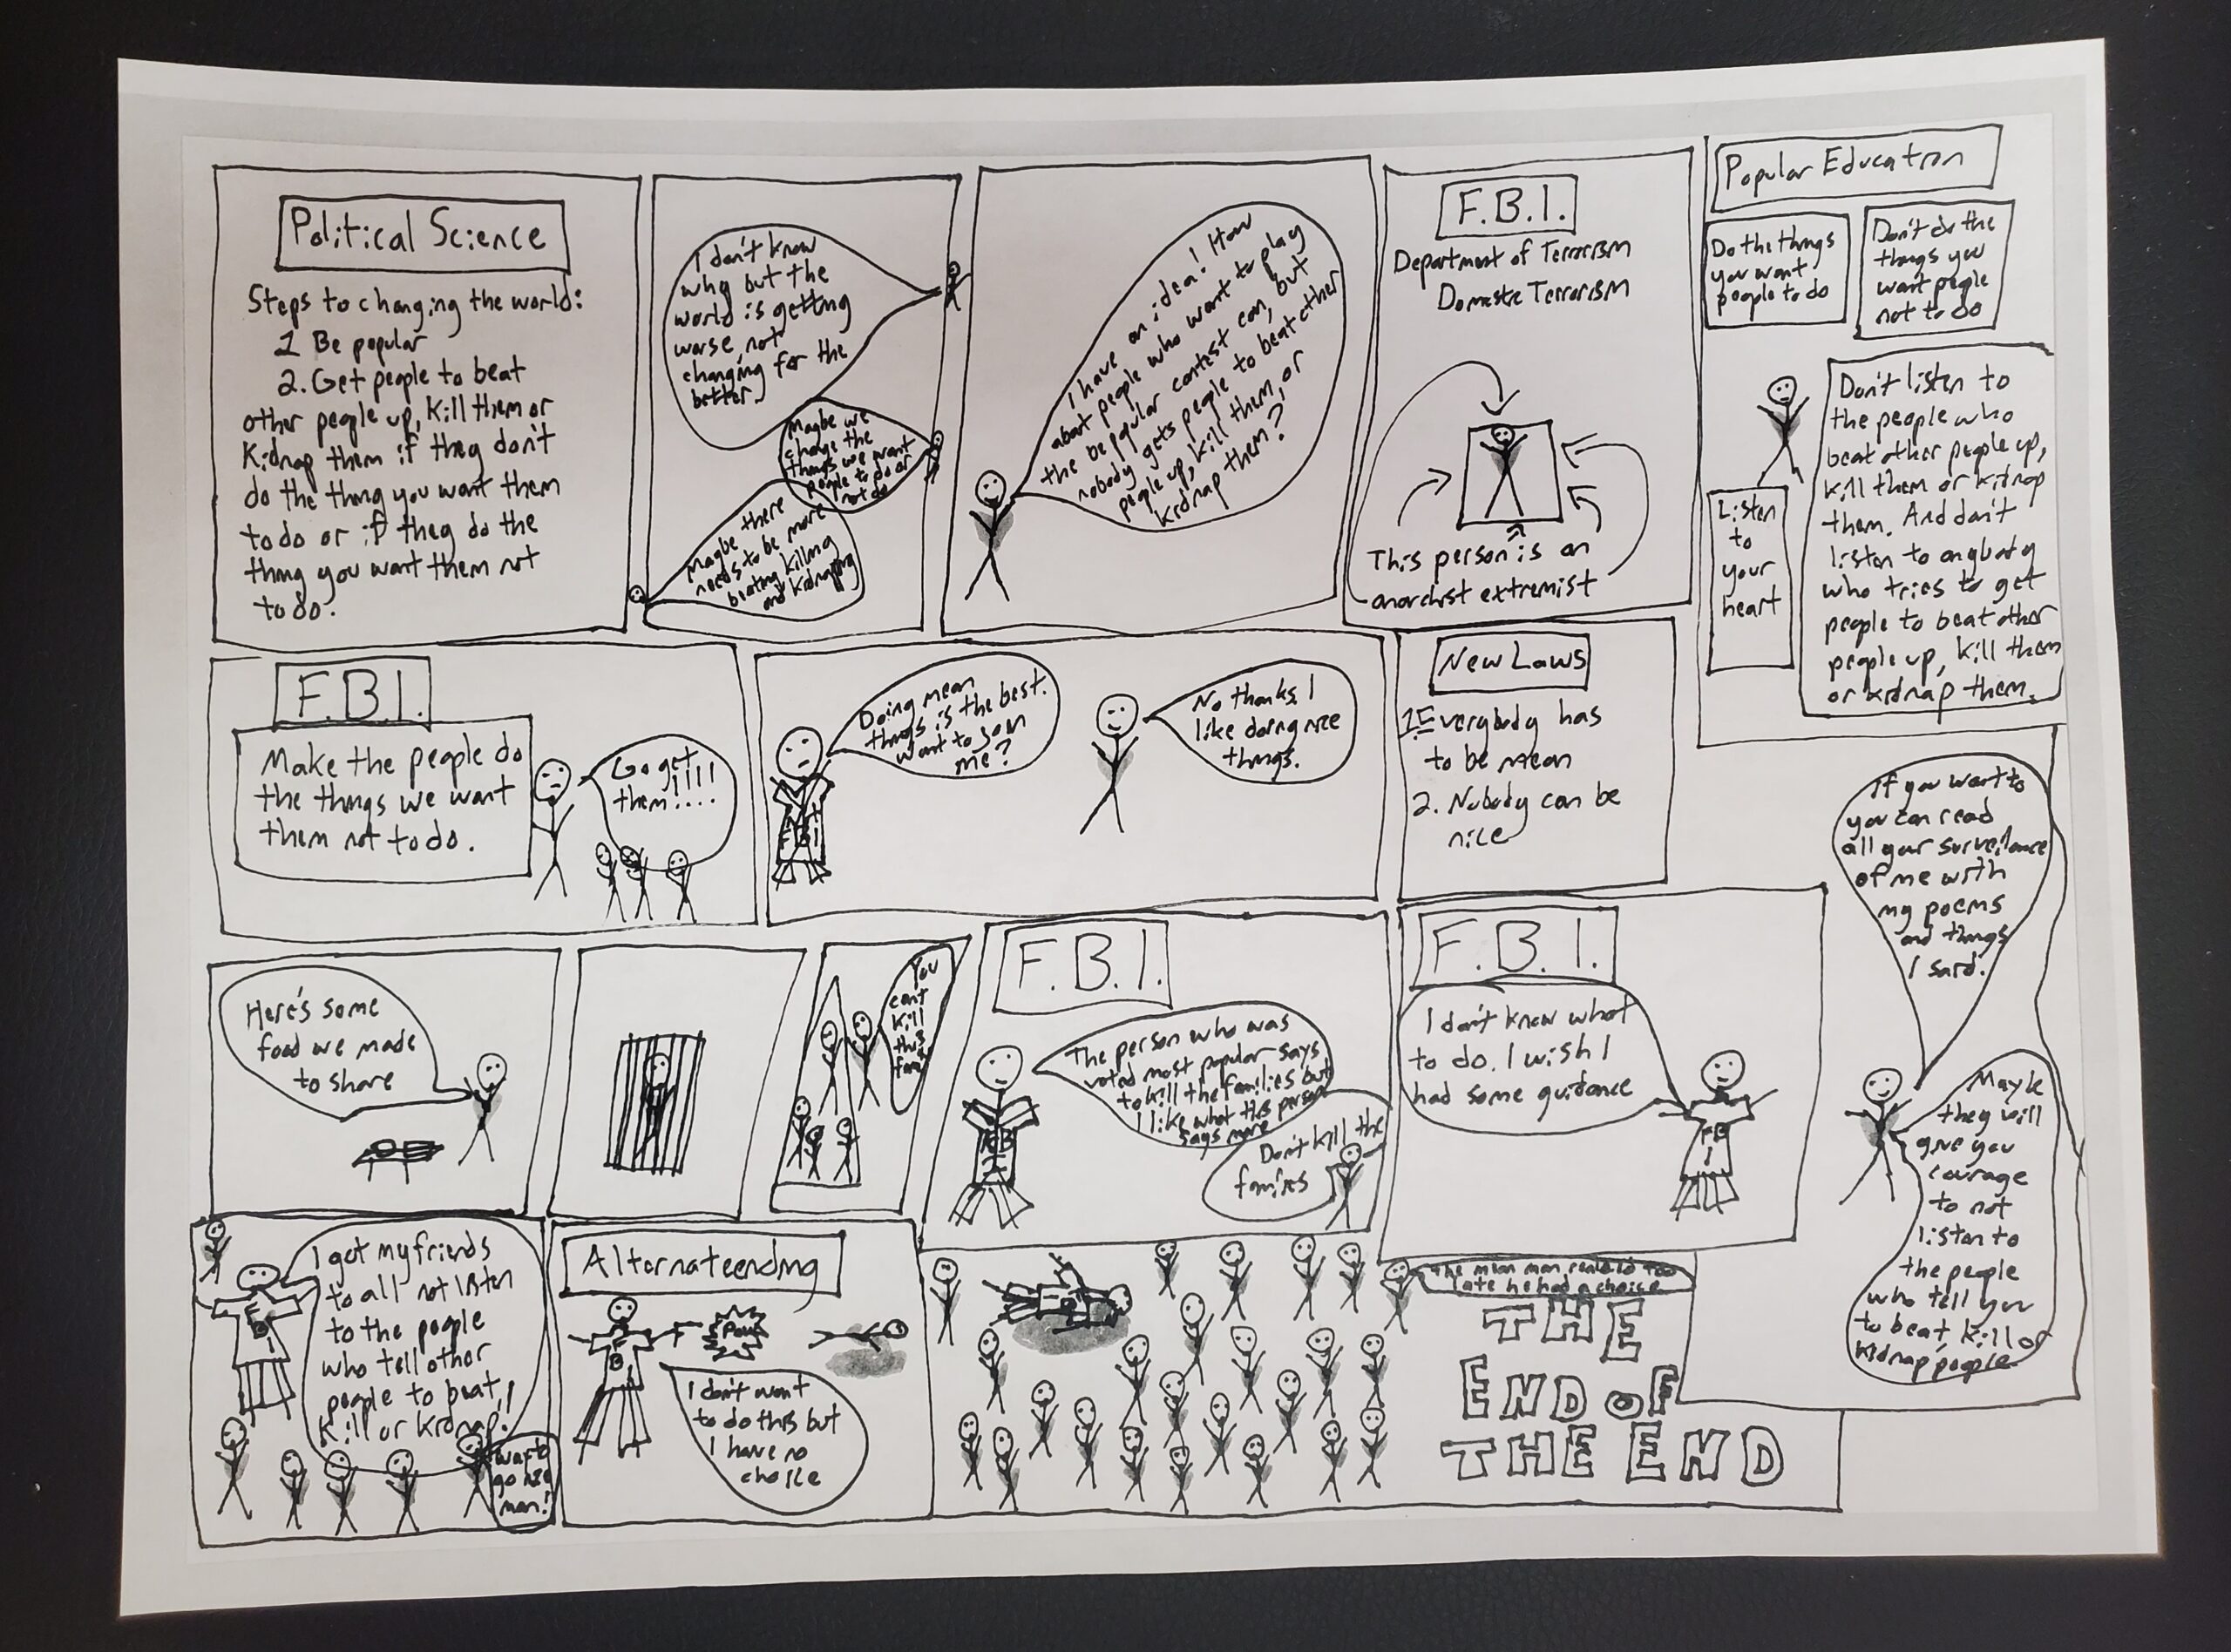 Political Science
Steps to changing the world:
1 Be popular
2. Get people to beat
other people up, kill them or
kidnap them if they don't
do the thing you want them
to do or if they do the
thing you want them not
to do.
I don't know
why but the
world is getting
worse, not
changing for the
better.
Maybe we
change the
things we want
people to do or
not do
Maybe there
needs to be more
beating killing
and kidnaping
I have an idea! How
about people who want to play
the be popular contest can, but
nobody gets people to beat other
people up, kill them, or
kidnap them?
F.B.I.
Department of Terrorism
Domestic Terrorism
This person is an
anarchist extremist
Popular Education
Do the things
you want
people to do
Don't do the
things you
want people
not to do
Listen
to
your
heart
Don't listen to
the people who
beat other people up,
kill them or kidnap
them. And don't
listen to anybody
who tries to get
people to beat other
people up, kill them
or kidnap them.
F.B.I.
Make the people do
the things we want
them not to do.
Go get
them!!!!
Doing mean
things is the best.
Want to join
me?
FBI
No thanks, I
like doing nice
things.
New Laws
1 Everybody has
to be mean
2. Nobody can be
nice
If you want to
you can read
all your surveilance
of me with
my poems
and things
I said.
Maybe
they will
give you
courage
to not
listen to
the people
who tell you
to beat, kill or
kidnap people
Here's some
food we made
to share
You
can't
kill
this
family
F.B.I.
The person who was
voted most popular says
to kill the families but
I like what this person
says more
Don't kill the
families
FBI
F.B.I.
I don't know what
to do. I wish I
had some guidance
FBI
I got my friends
to all not listen
to the people
who tell other
people to beat,
kill or kidnap!
FBI
Way to
go nice
man!
Alternate ending
Pow
FBI
I don't want
to do this but
I have no
choice
The mean man realized too
late he had a choice
THE
END OF
THE END